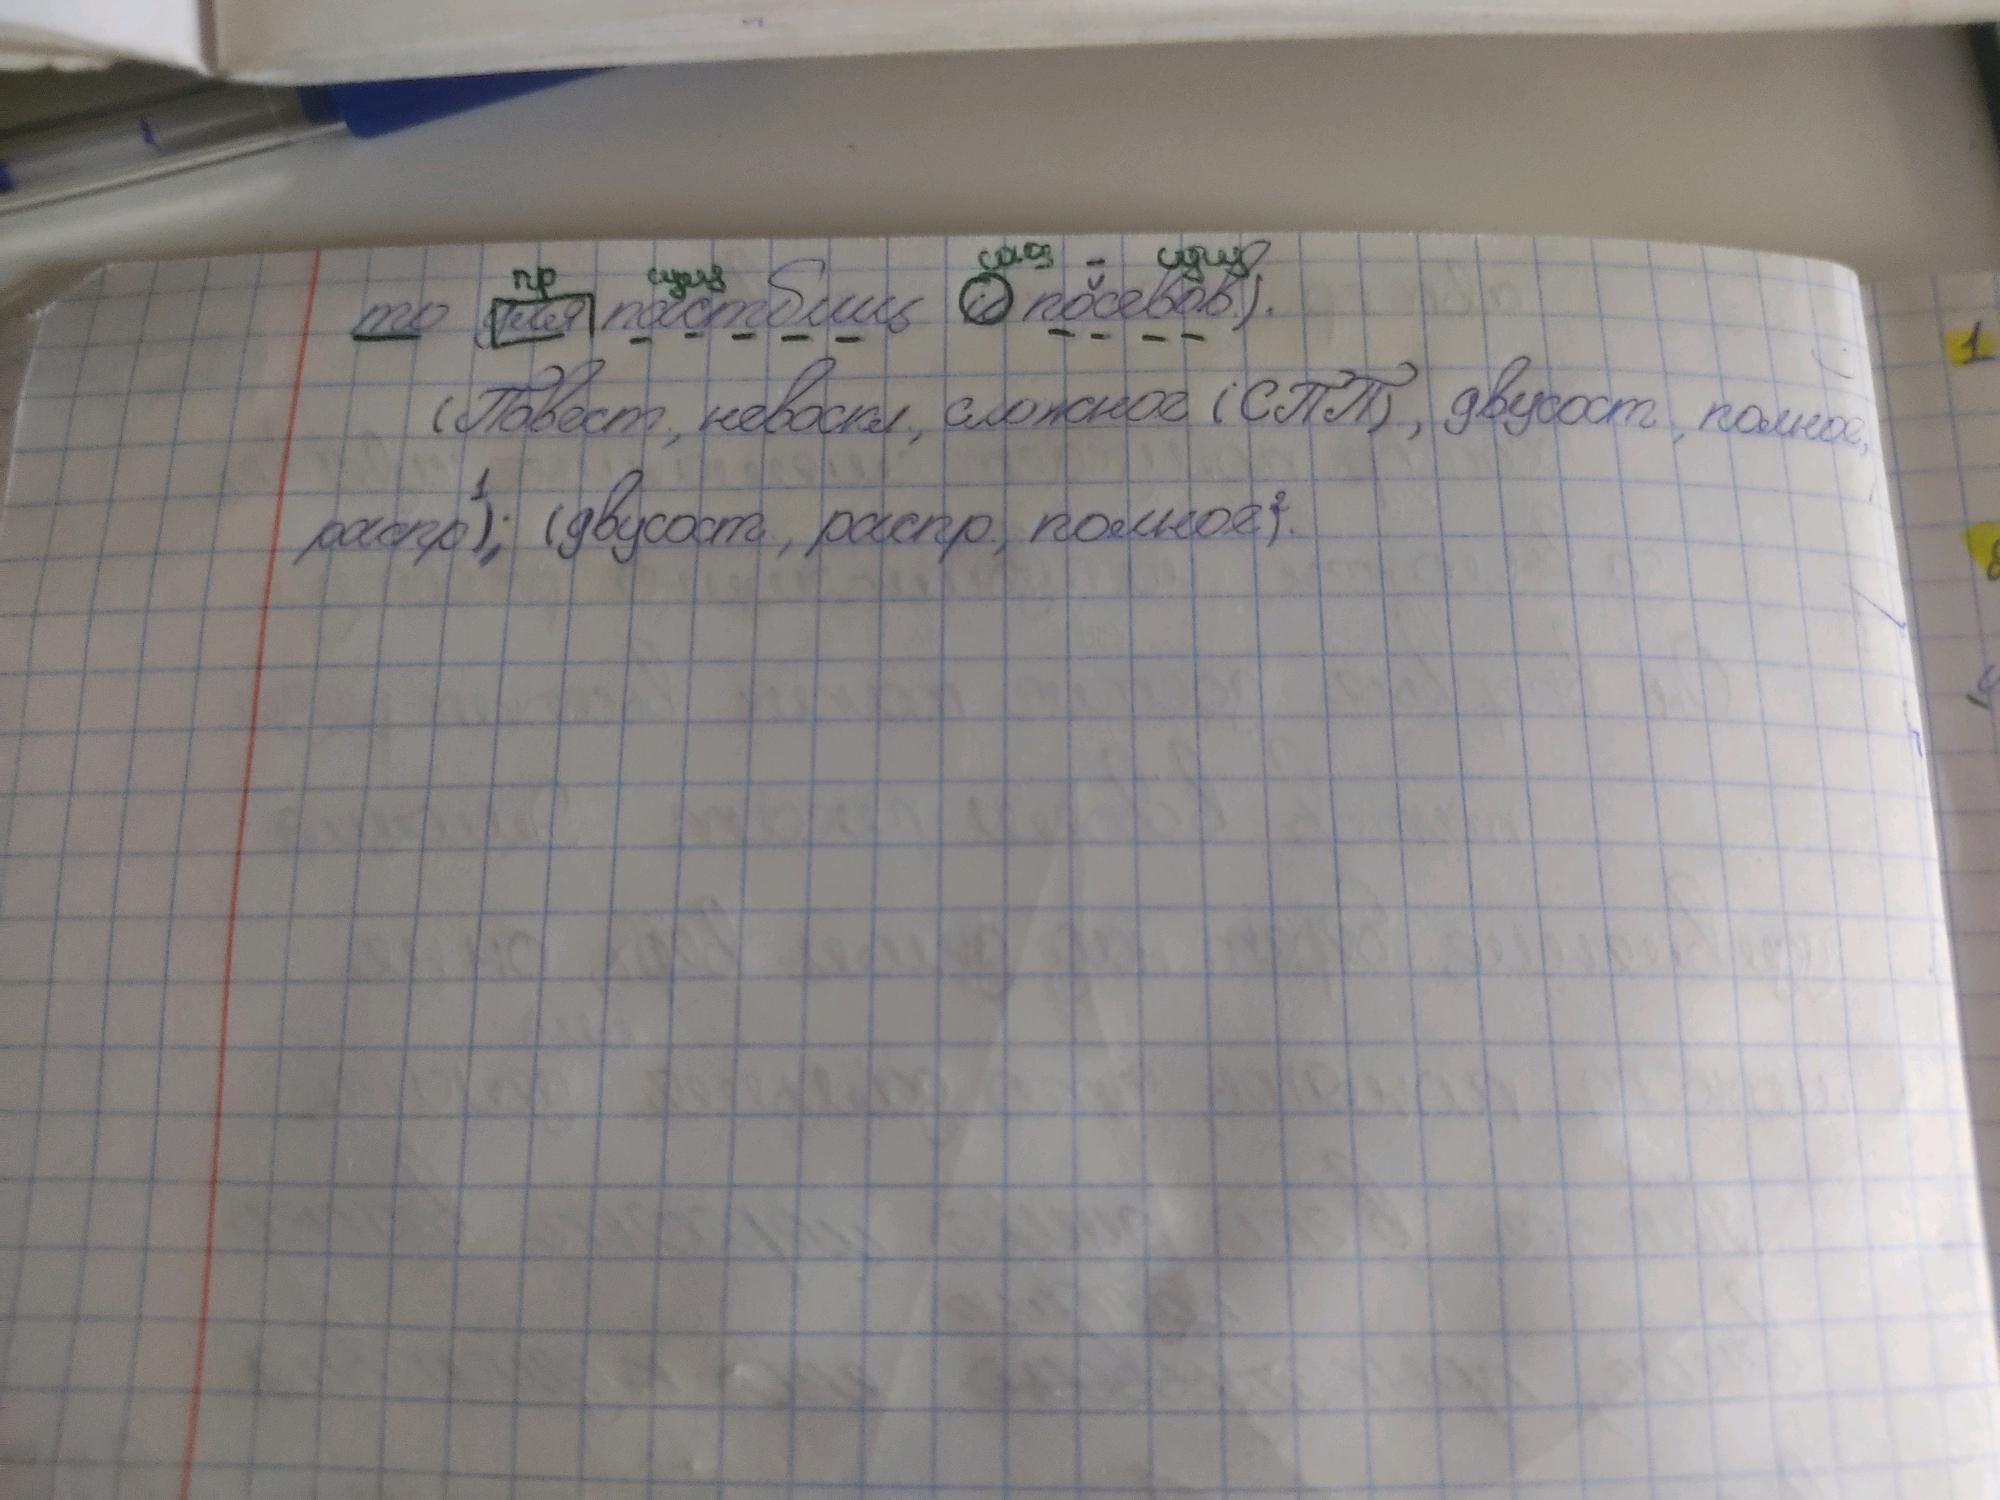 пр сущ союз сущ
то для пастбищ и посевов).
(Повест, невоскл, сложное (СПП), двусост, полное,
распр)¹; (двусост, распр, полное)².
1